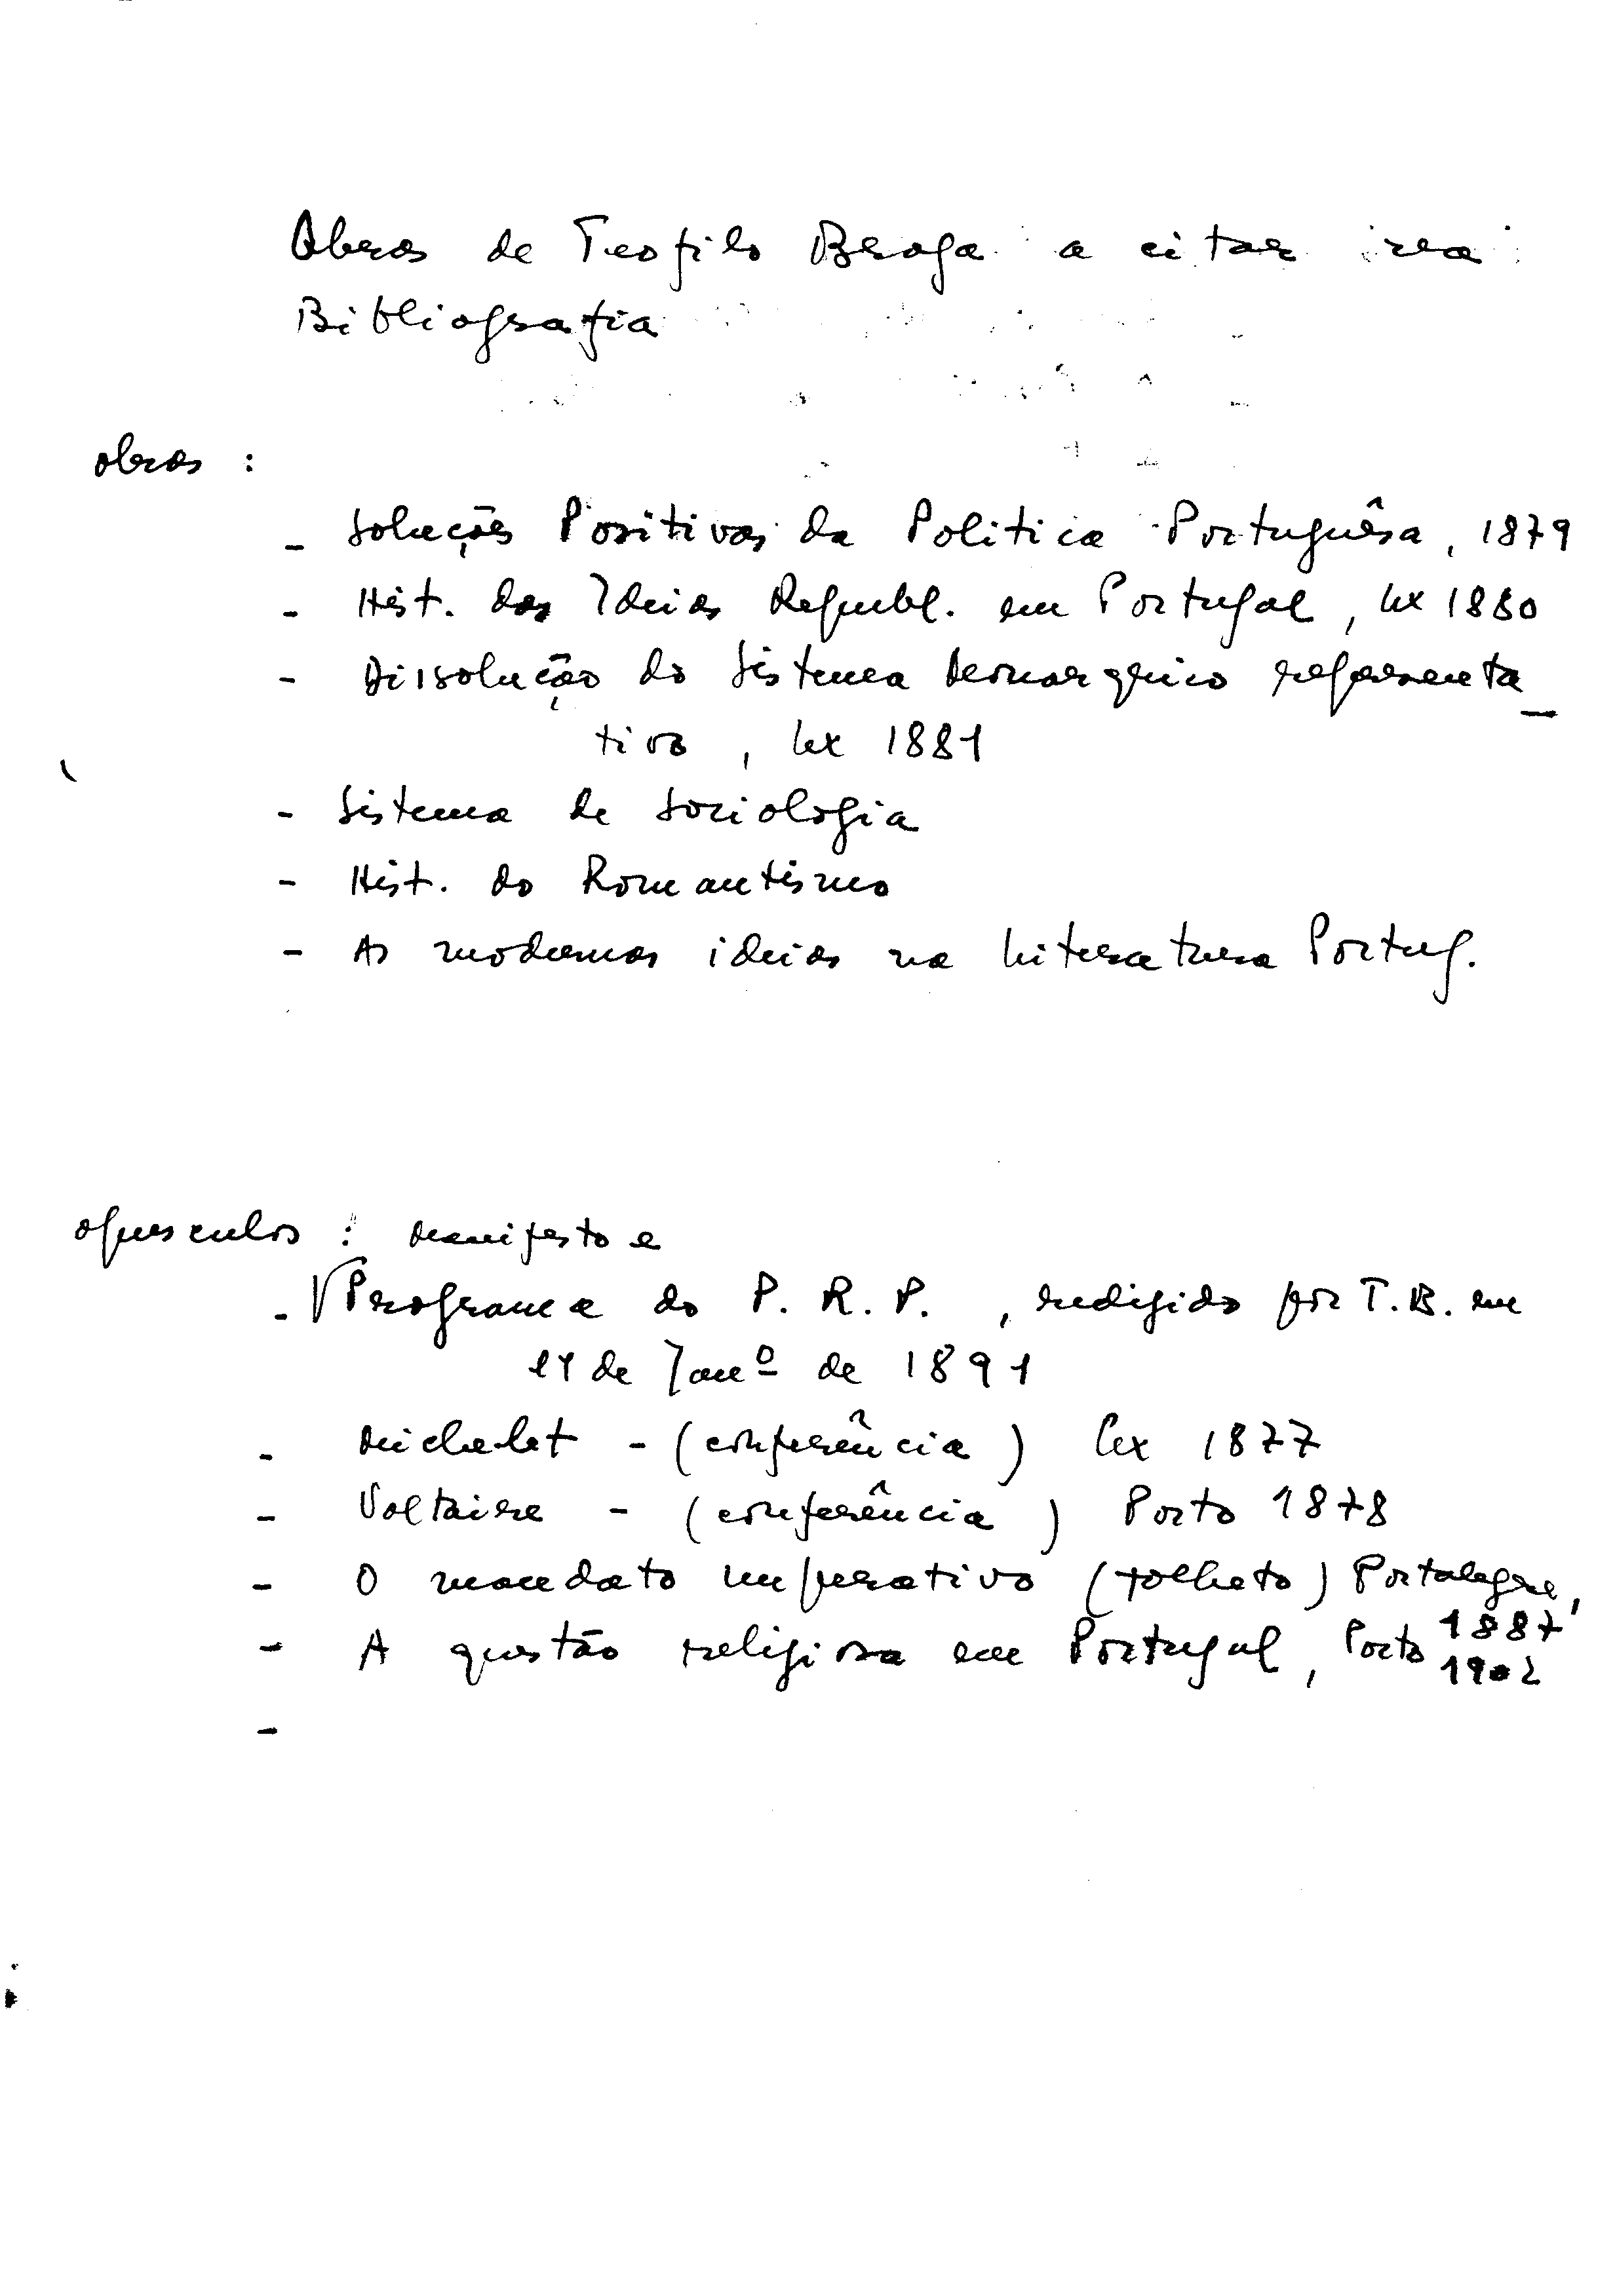 Obras de Teofilo Braga a citar na
Bibliografia
obras :
- Soluções Positivas da Politica Portuguêsa, 1879
- Hist. das Ideias Republ. em Portugal, Lx 1880
- Dissolução do Sistema Monarquico representa_
tivo, Lx 1881
- Sistema de Sociologia
- Hist. do Romantismo
- As modernas ideias na Literatura Portug.
opusculos : Manifesto e
- √Programa do P. R. P. , redigido por T. B. em
de Janº de 1891
- Michelet - (conferência) Lx 1877
- Voltaire - (conferência) Porto 1878
- O mandato imperativo (folheto) Portalegre,
1887
- A questão religiosa em Portugal, Porto 1902
-